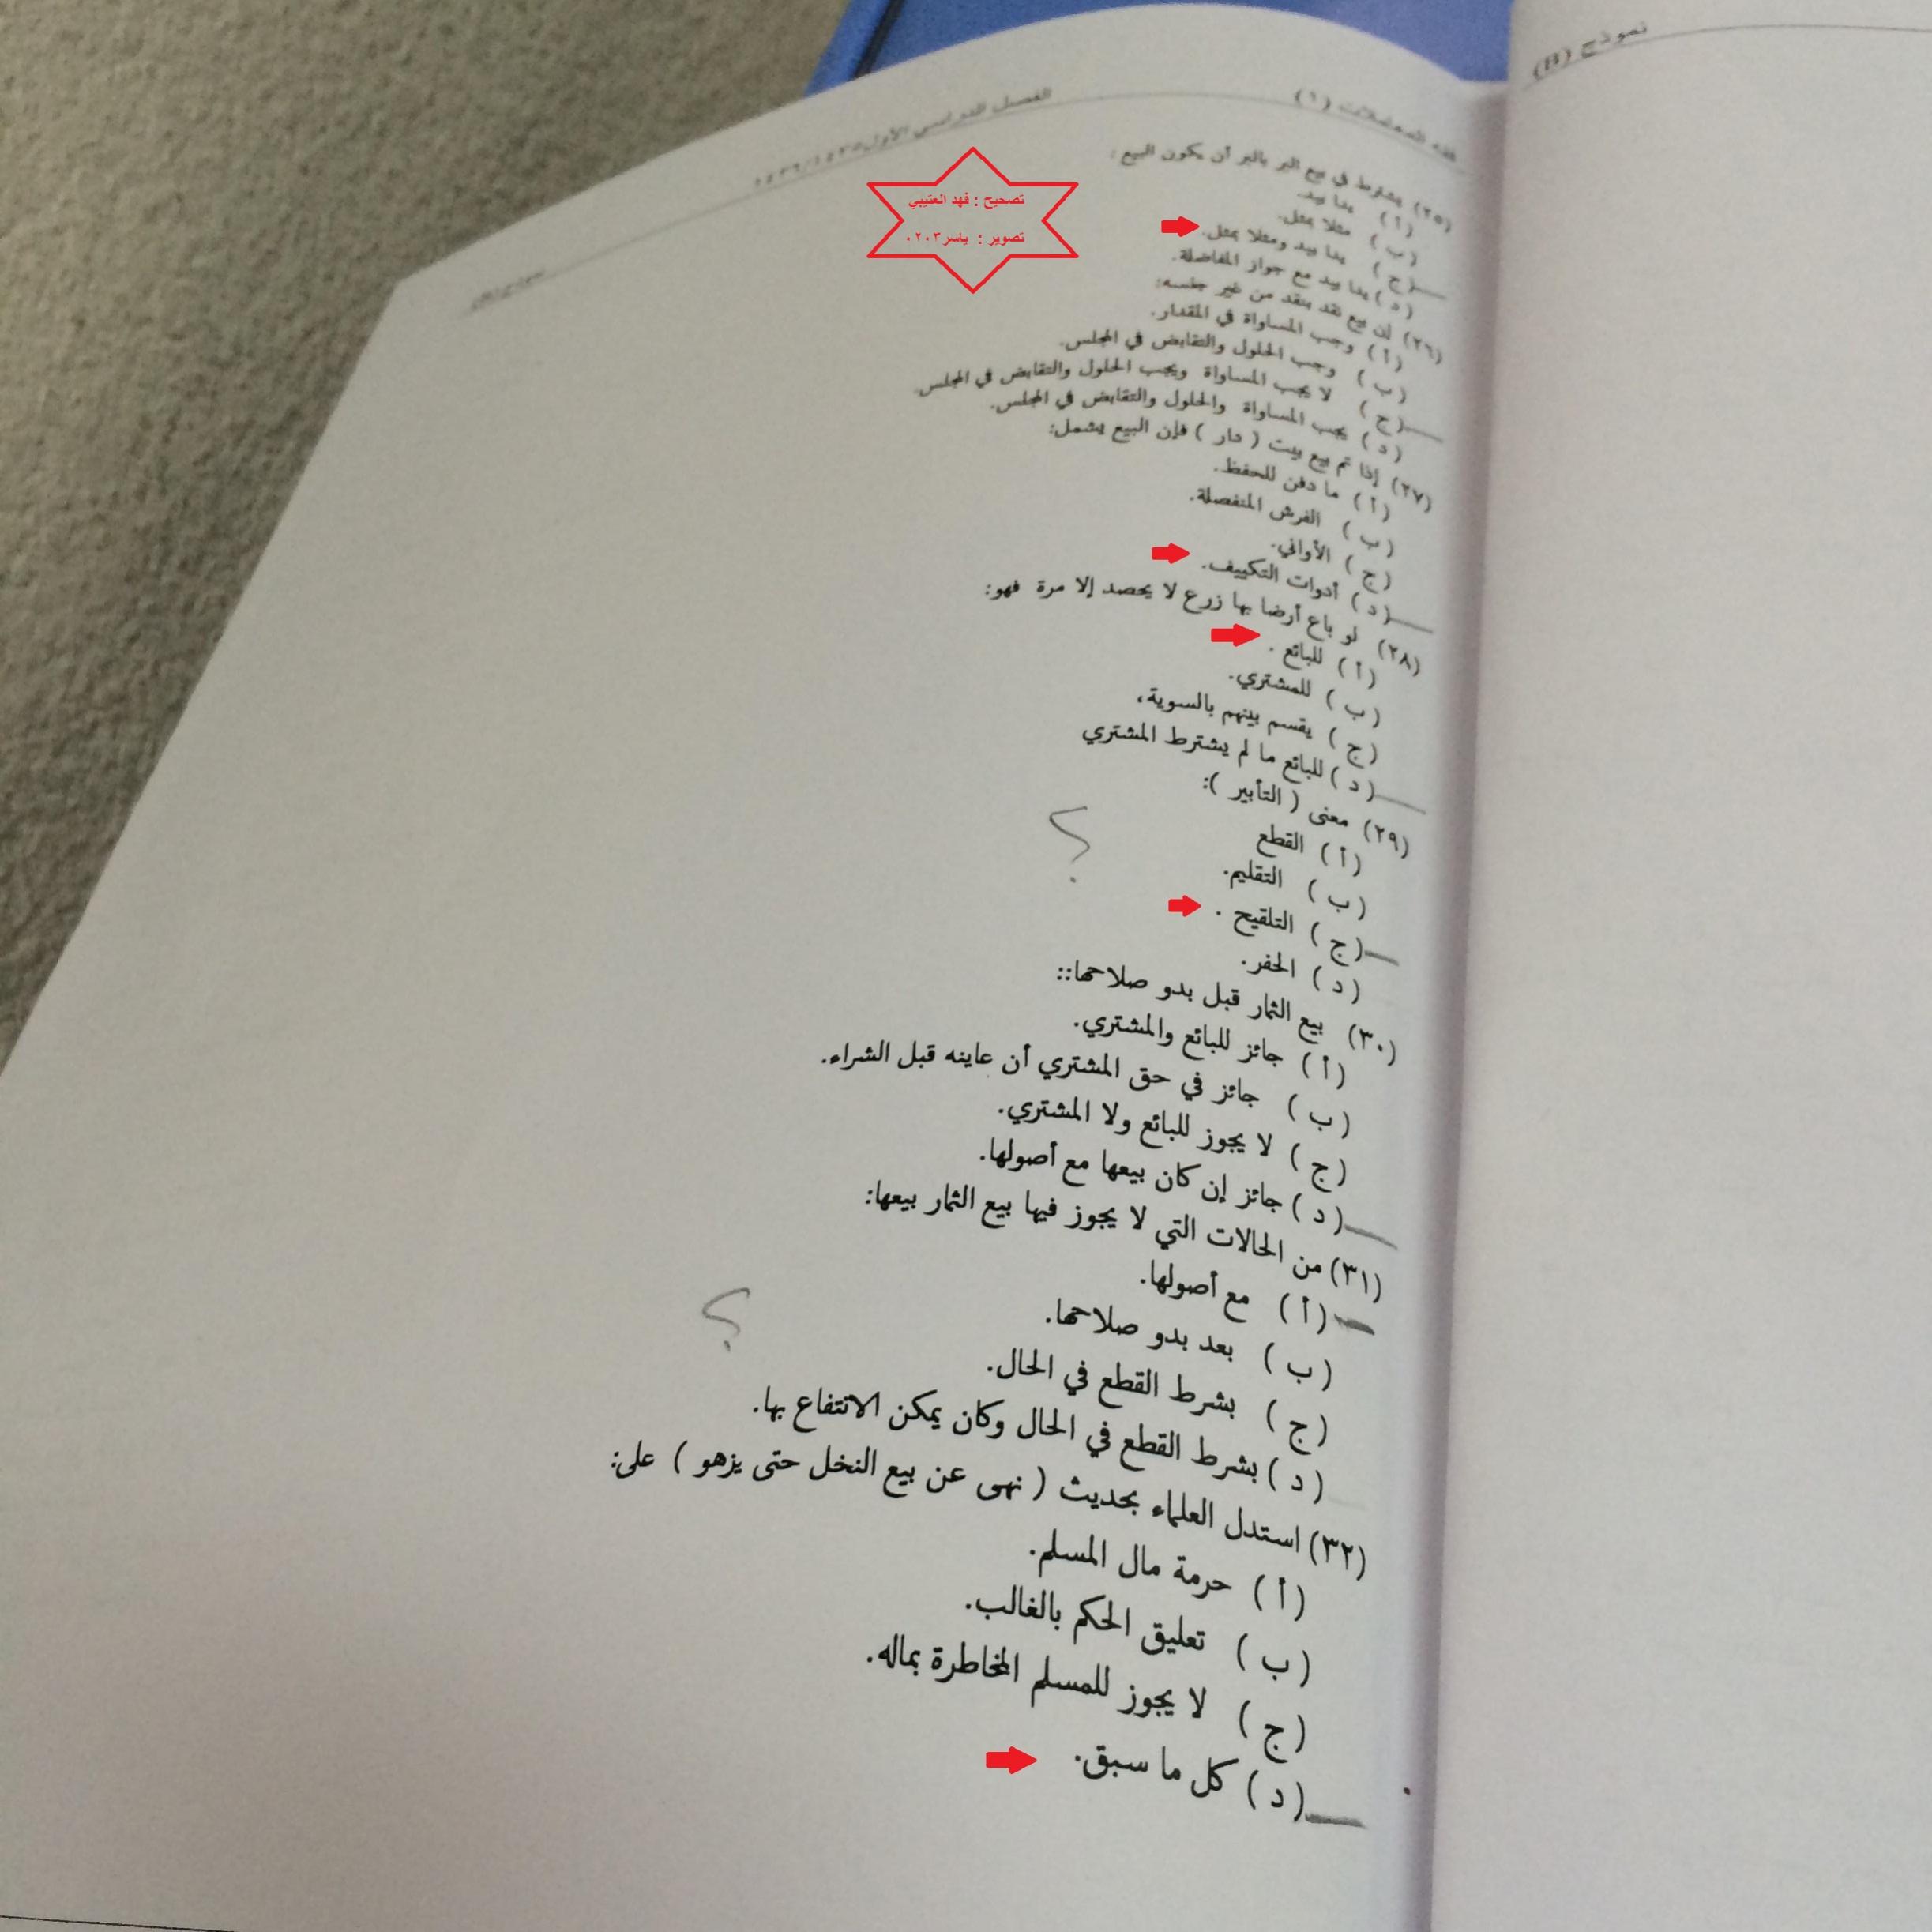 نموذج (B)
فقه المعاملات (١)
الفصل الدراسي الأول ١٤٣٥/١٤٣٦
تصحيح : فهد العتيبي
تصوير : ياسر٠٢٠٣
(٢٥) يشترط في بيع البر بالبر أن يكون البيع :
(أ) يدا بيد.
(ب) مثلا بمثل.
(ج) يدا بيد ومثلا بمثل.
(د) يدا بيد مع جواز المفاضلة.
(٢٦) إن بيع نقد بنقد من غير جنسه:
(أ) وجب المساواة في المقدار.
(ب) وجب الحلول والتقابض في المجلس.
(ج) لا يجب المساواة ويجب الحلول والتقابض في المجلس.
(د) يجب المساواة والحلول والتقابض في المجلس.
(٢٧) إذا تم بيع بيت ( دار ) فإن البيع يشمل:
(أ) ما دفن للحفظ.
(ب) الفرش المنفصلة.
(ج) الأواني.
(د) أدوات التكييف.
(٢٨) لو باع أرضا بها زرع لا يحصد إلا مرة فهو:
(أ) للبائع .
(ب) للمشتري.
(ج) يقسم بينهم بالسوية،
(د) للبائع ما لم يشترط المشتري
(٢٩) معنى ( التأبير ):
(أ) القطع
(ب) التقليم.
(ج) التلقيح .
(د) الحفر.
؟
(٣٠) بيع الثمار قبل بدو صلاحها::
(أ) جائز للبائع والمشتري.
(ب) جائز في حق المشتري أن عاينه قبل الشراء.
(ج) لا يجوز للبائع ولا المشتري.
(د) جائز إن كان بيعها مع أصولها.
(٣١) من الحالات التي لا يجوز فيها بيع الثمار بيعها:
(أ) مع أصولها.
(ب) بعد بدو صلاحها.
(ج) بشرط القطع في الحال.
(د) بشرط القطع في الحال وكان يمكن الانتفاع بها.
؟
(٣٢) استدل العلماء بحديث ( نهى عن بيع النخل حتى يزهو ) على:
(أ) حرمة مال المسلم.
(ب) تعليق الحكم بالغالب.
(ج) لا يجوز للمسلم المخاطرة بماله.
(د) كل ما سبق.